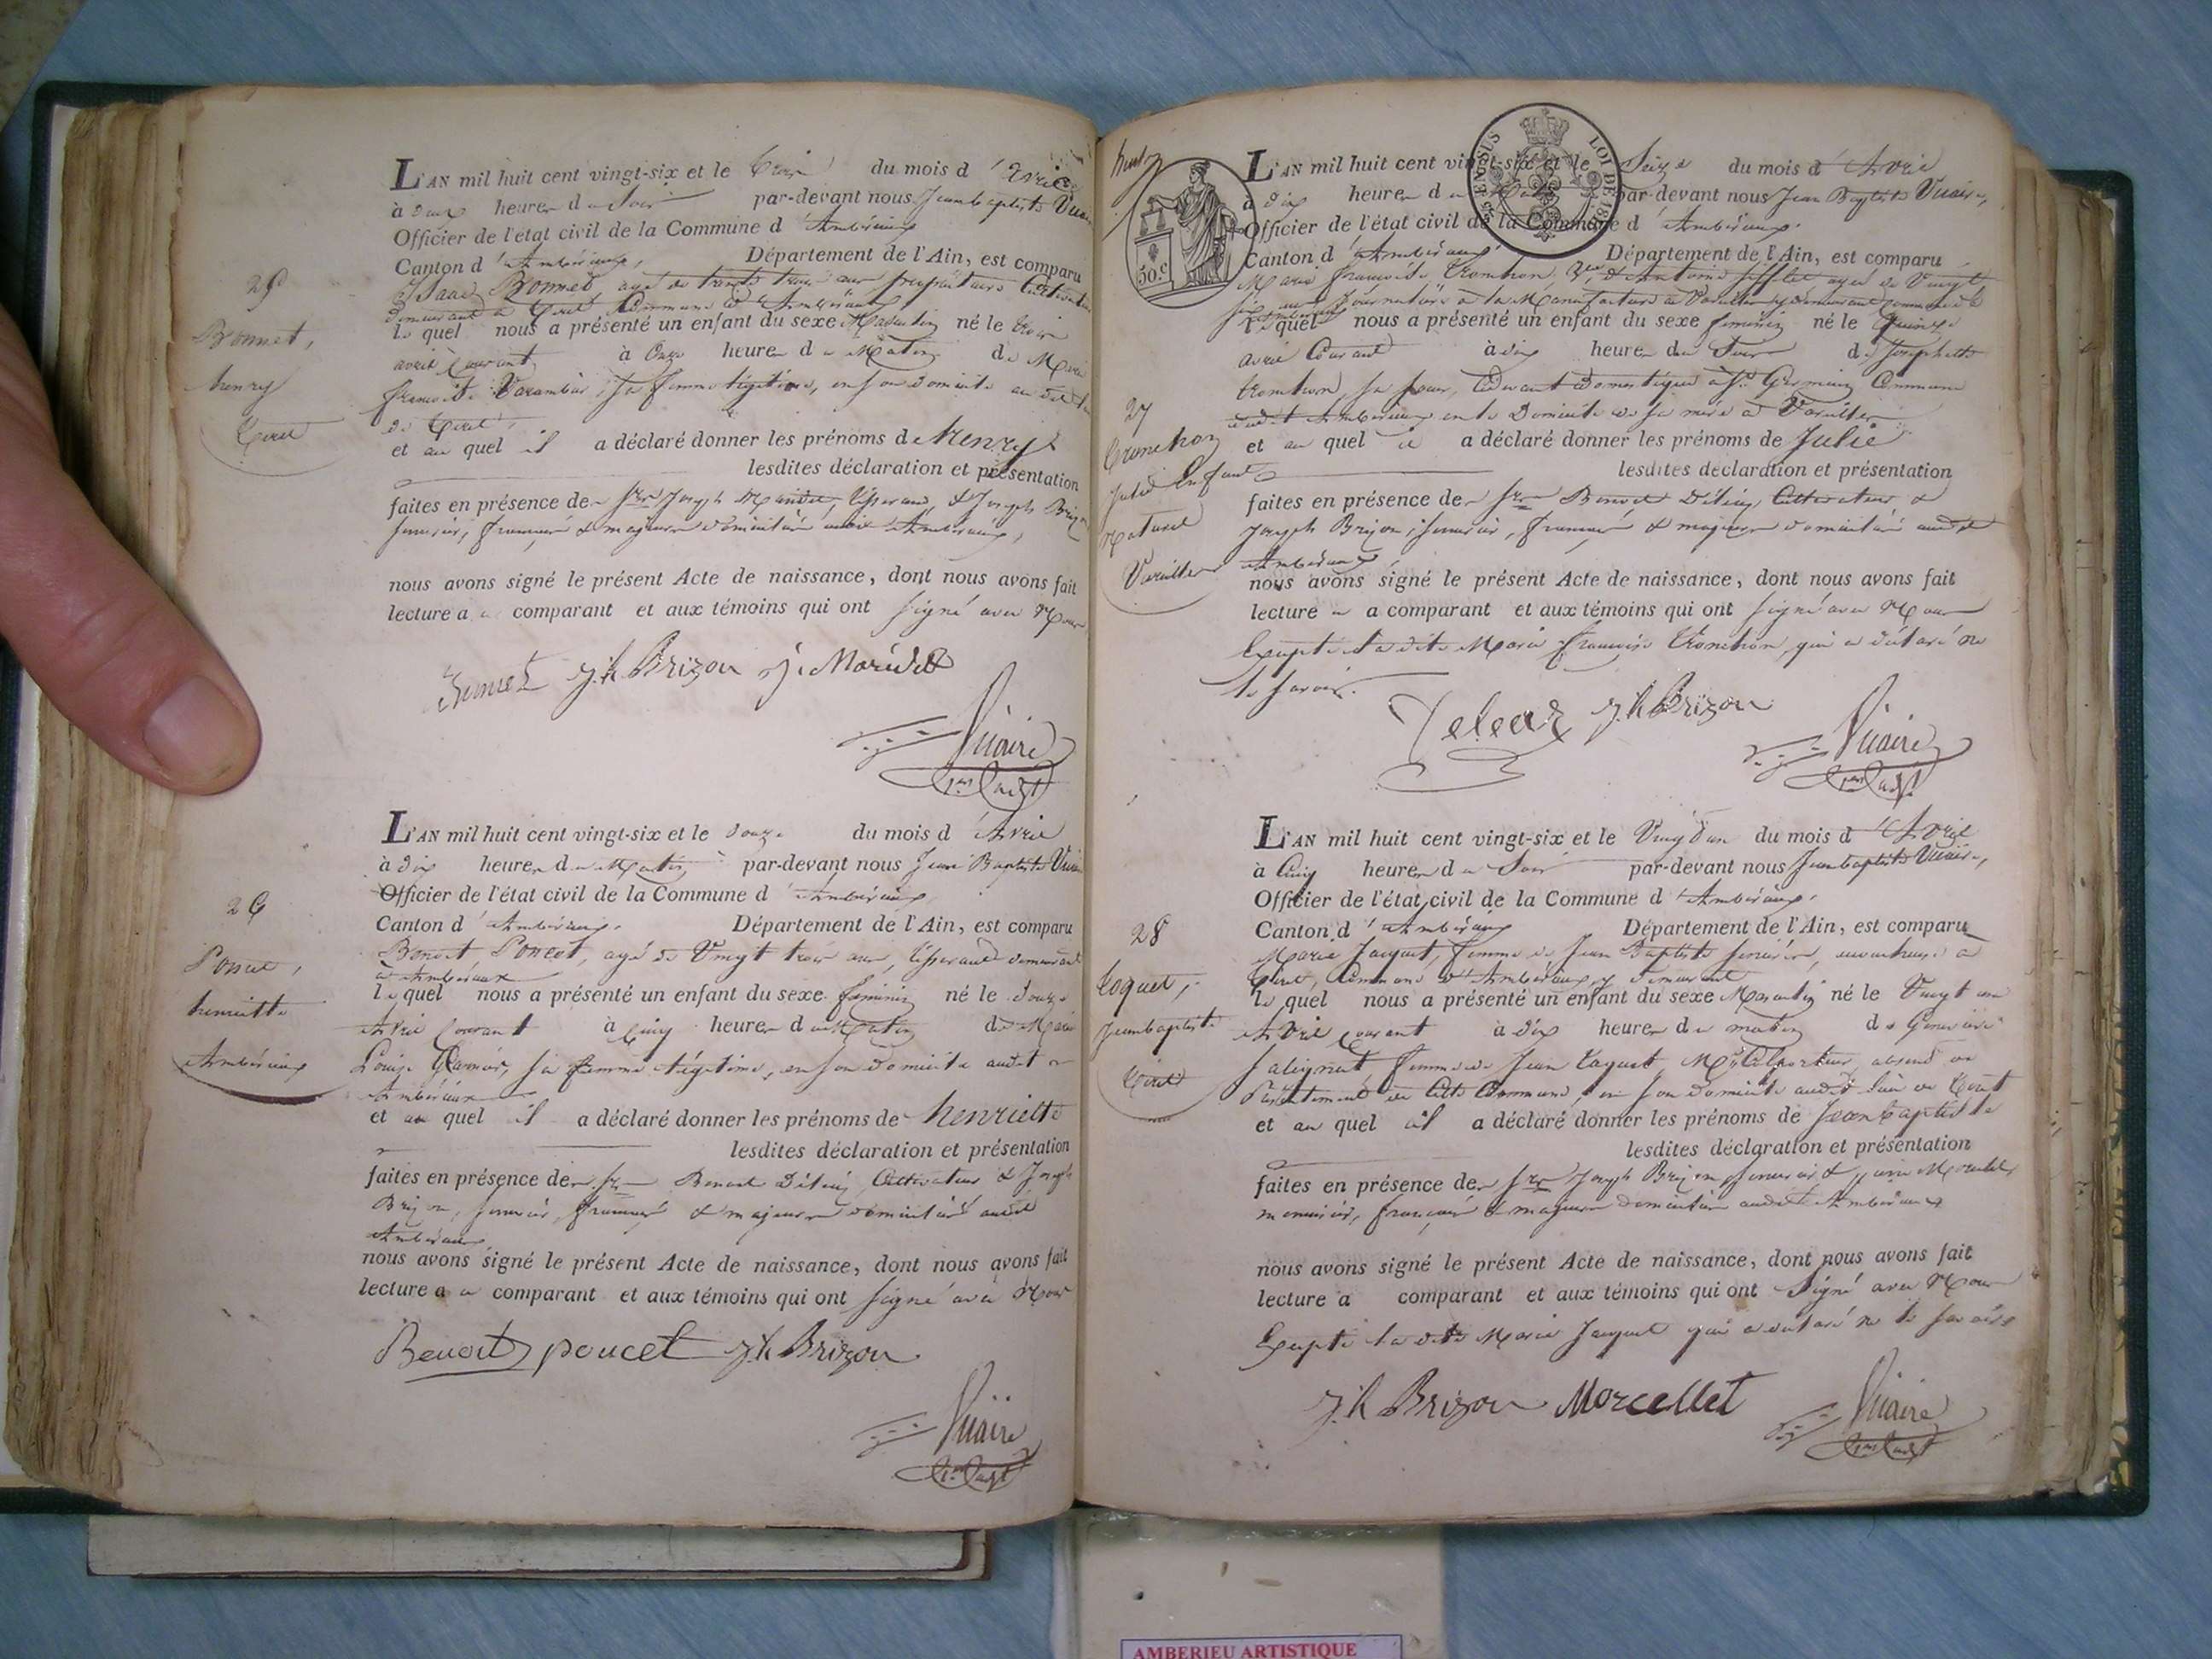 25
Bonnet,
henry
Tiret
L'AN mil huit cent vingt-six et le trois du mois d'Avril
à deux heures du Soir par-devant nous Jean baptiste
Officier de l'état civil de la Commune d'Ambérieux
Canton d'Ambérieux, Département de l'Ain, est comparu
Isaac Bonnet, agé de trente trois ans propriétaire
demeurant à Tiret Commune d'Ambérieux
le quel nous a présenté un enfant du sexe Masculin né le trois
avril Courant à Onze heures du Matin de Marie
françoise Varambier, sa femme légitime, en son domicile audit
de Tiret,
et au quel il a déclaré donner les prénoms de henry
lesdites déclaration et présentation
faites en présence de Srs Joseph tisserand, & Joseph
français & majeurs domiciliés audit Ambérieux,
nous avons signé le présent Acte de naissance, dont nous avons fait
lecture au comparant et aux témoins qui ont signé avec Nous
Bonnet jh Brizon
Vuaire
1er adjt
26
Poncet,
henriette
Ambérieux
L'AN mil huit cent vingt-six et le douze du mois d'Avril
à dix heures du Matin par-devant nous Jean Baptiste
Officier de l'état civil de la Commune d'Ambérieux
Canton d'Ambérieux. Département de l'Ain, est comparu
Benoit Poncet, agé de Vingt trois ans, tisserand demeurant
à Ambérieux
le quel nous a présenté un enfant du sexe féminin né le douze
Avril Courant à Cinq heures du Matin de Marie
Louise sa femme légitime, en son domicile audit
Ambérieux
et au quel il a déclaré donner les prénoms de henriette
lesdites déclaration et présentation
faites en présence de Srs Benoit Cultivateur & Joseph
Brizon, français & majeurs domiciliés audit
Ambérieux
nous avons signé le présent Acte de naissance, dont nous avons fait
lecture au comparant et aux témoins qui ont signé avec Nous
Benoit poucet jh Brizon
Vuaire
1er adjt
50.c
EN SUS LOI DE
27
Tronchon
Julie Enfant
Naturel
Vareilles
L'AN mil huit cent vingt-six et le Seize du mois d'Avril
à dix heures du par-devant nous Jean Baptiste Vuaire,
Officier de l'état civil de la Commune d'Ambérieux.
Canton d'Ambérieux Département de l'Ain, est comparu
Marie françoise Tronchon, agée de Vingt
six ans Journalière à la Manufacture de Vareilles y demeurant
le quel nous a présenté un enfant du sexe féminin né le Quinze
avril Courant à dix heures du Soir de Josephette
tronchon, sa soeur, domestique à St. Germain Commune
dudit Ambérieux en le Domicile de sa mère à Vareilles
et au quel il a déclaré donner les prénoms de Julie
lesdites déclaration et présentation
faites en présence de Srs Benoit Cultivateur &
Joseph Brizon, français & majeurs domiciliés audit
Ambérieux
nous avons signé le présent Acte de naissance, dont nous avons fait
lecture a comparant et aux témoins qui ont signé avec Nous
Excepté la dite Marie françoise Tronchon, qui a déclaré ne
le savoir.
jh Brizon
Vuaire
1er adjt
28
Jean baptiste
Tiret
L'AN mil huit cent vingt-six et le Vingt un du mois d'Avril
à Cinq heures du Soir par-devant nous Jean baptiste Vuaire,
Officier de l'état civil de la Commune d'Ambérieux.
Canton d'Ambérieux Département de l'Ain, est comparu
Marie Jacquet, femme de Jean Baptiste accoucheuse à
Tiret, Commune d'Ambérieux, y demeurant
le quel nous a présenté un enfant du sexe Masculin né le Vingt un
Avril courant à dix heures du matin de
femme de Jean absent
en son domicile audit lieu de Tiret
et au quel il a déclaré donner les prénoms de Jean baptiste
lesdites déclaration et présentation
faites en présence de Srs Joseph Brizon &
menuisier, français & majeurs domiciliés audit Ambérieux
nous avons signé le présent Acte de naissance, dont nous avons fait
lecture a comparant et aux témoins qui ont Signé avec Nous
Excepté la dite Marie Jacquet qui a déclaré ne le savoir
jh Brizon Morcellet
Vuaire
1er adjt
AMBERIEU ARTISTIQUE